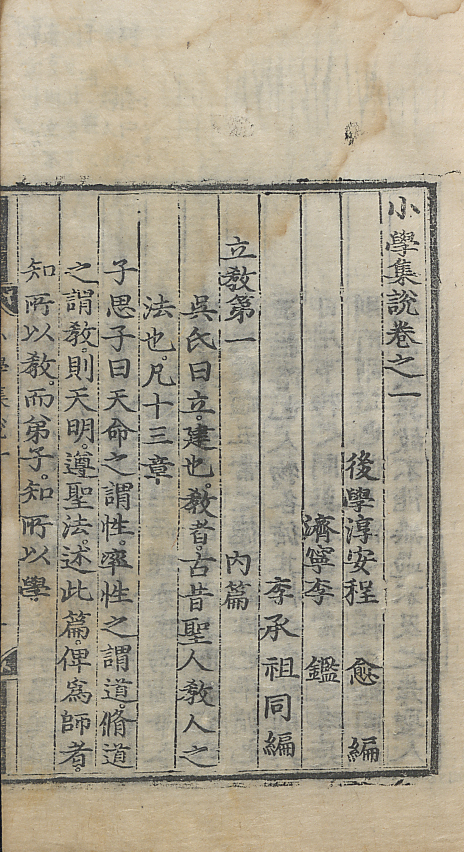 小學集說卷之一
後學淳安程 愈 編
濟寧李 鑑
李承祖同編
立敎第一 內篇
吳氏曰立。建也。敎者。古昔聖人敎人之
法也。凡十三章
子思子曰天命之謂性。率性之謂道。脩道
之謂敎。則天明。遵聖法。述此篇。俾爲師者。
知所以敎。而弟子。知所以學。